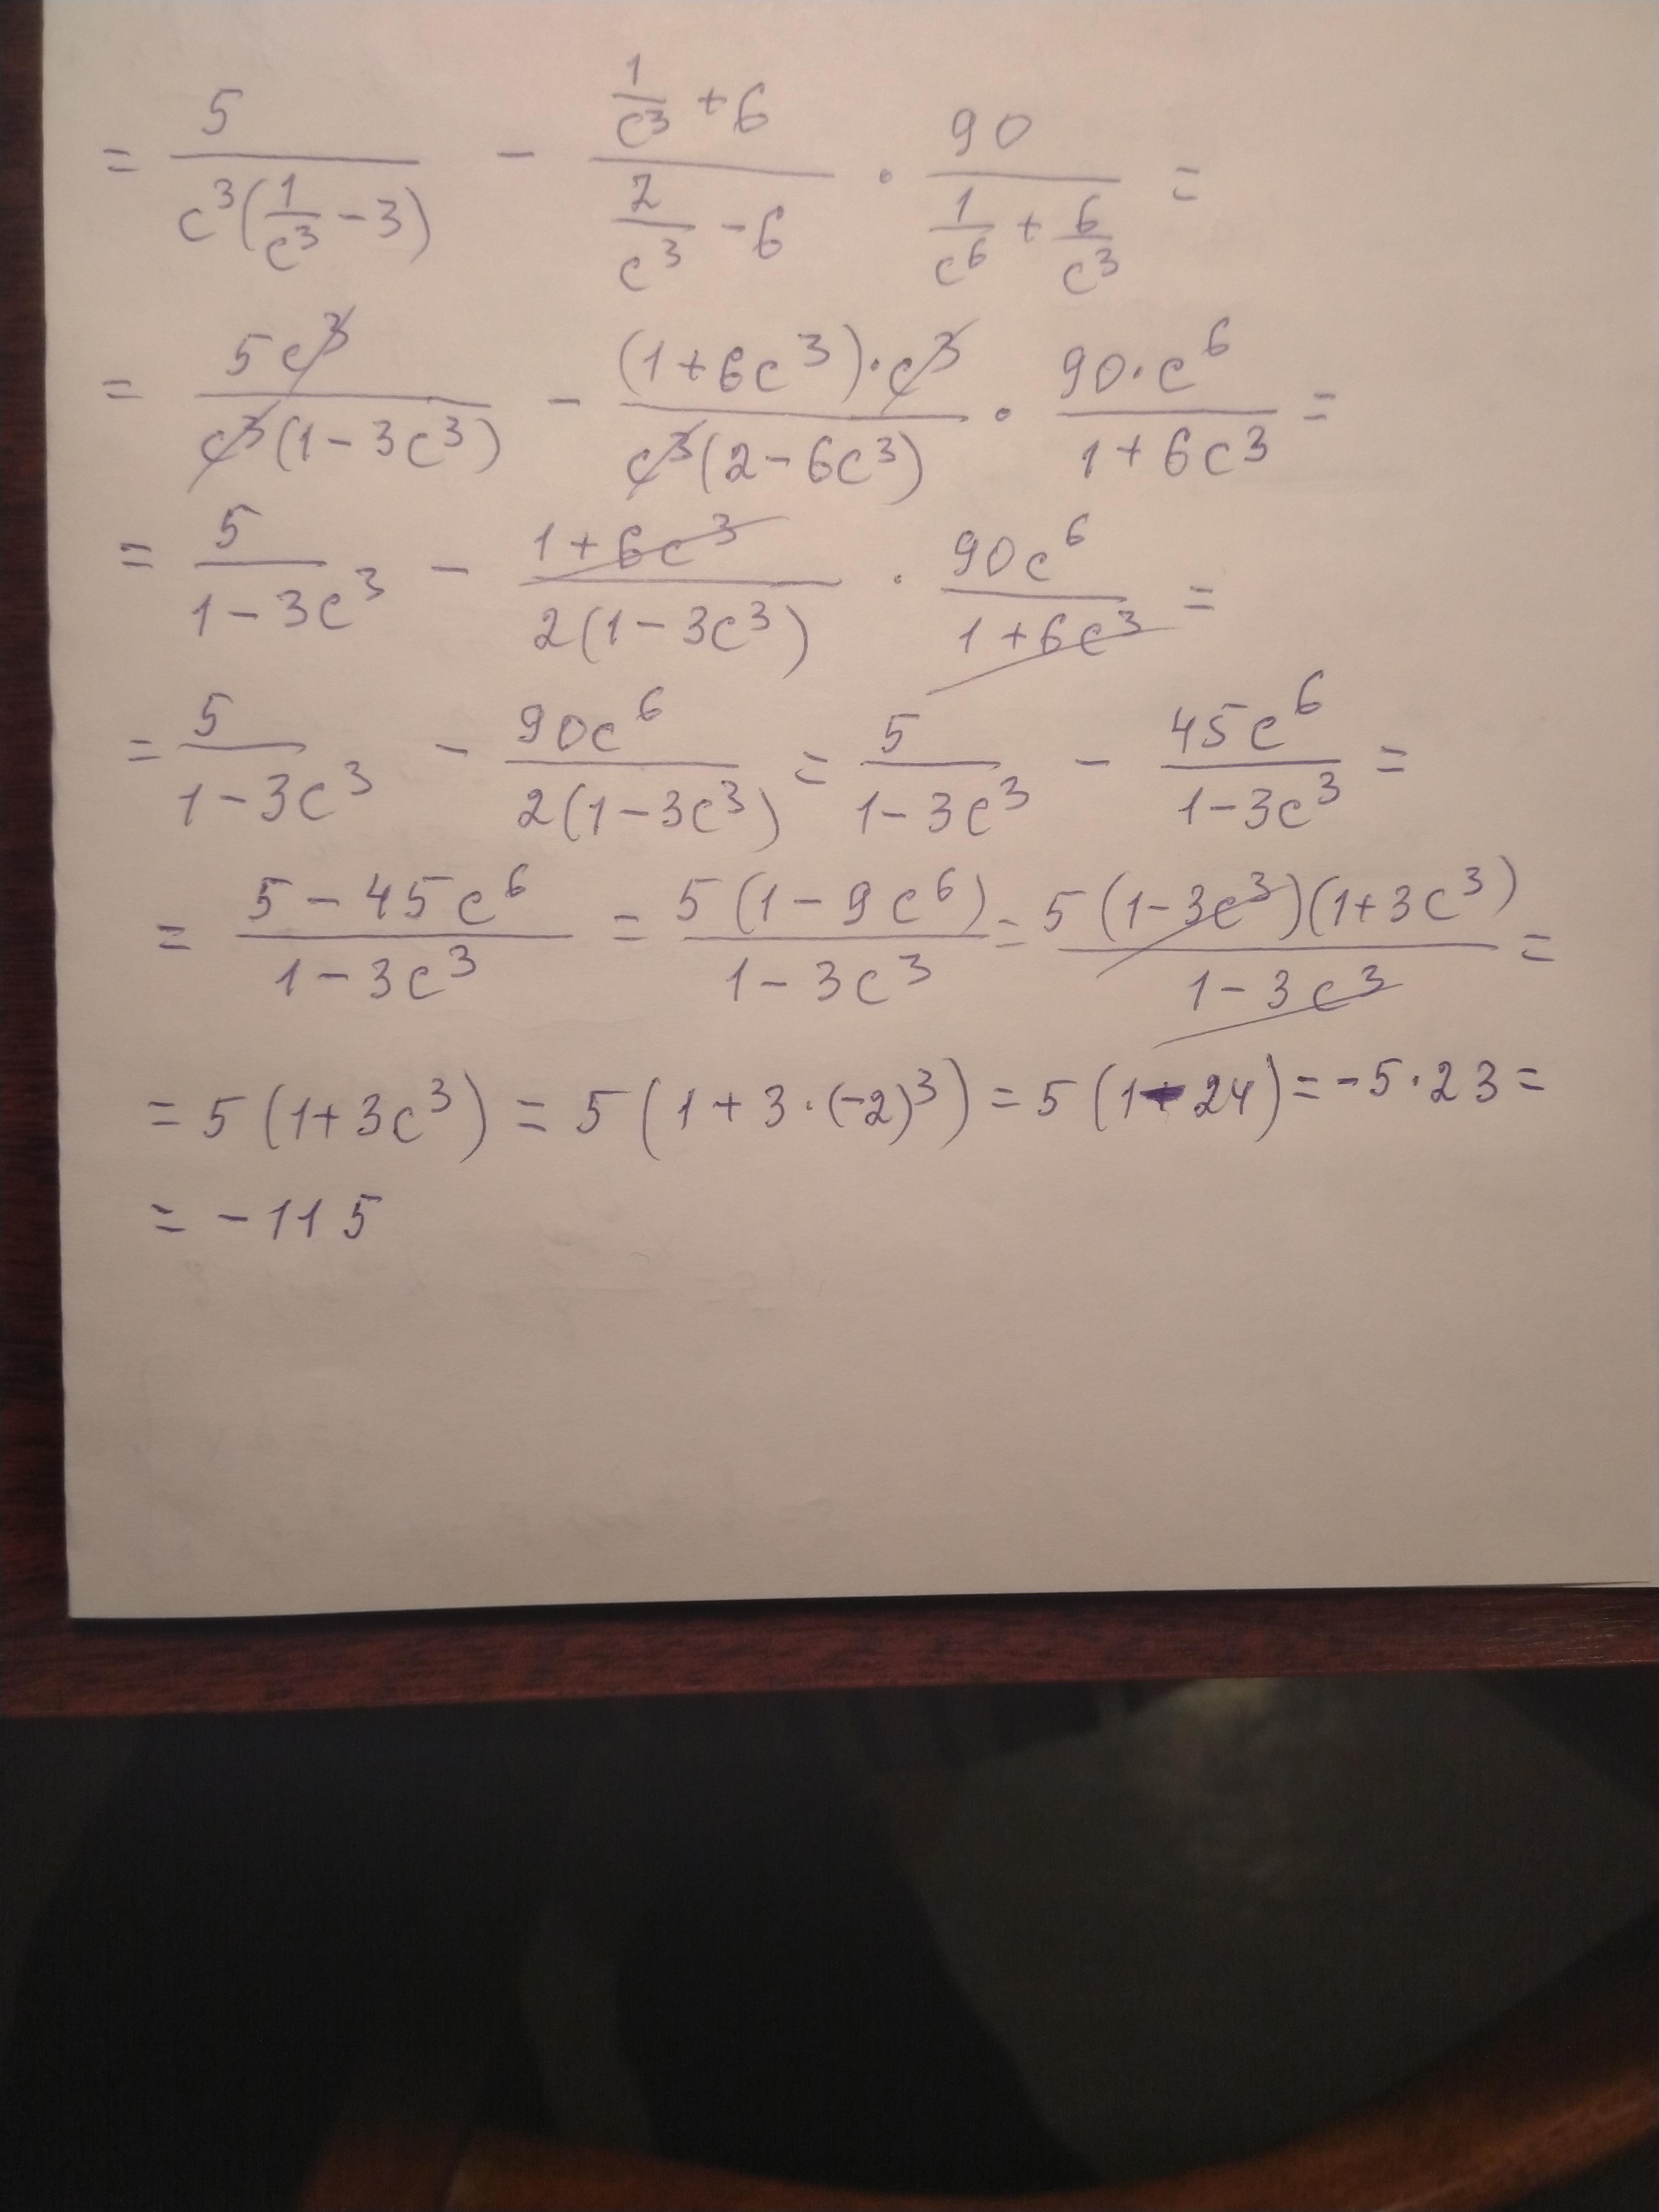 = 5/(c³(1/c³ - 3)) - (1/c³ + 6)/(2/c³ - 6) · 90/(1/c⁶ + 6/c³) =
= 5c³/(c³(1 - 3c³)) - ((1 + 6c³)·c³)/(c³(2 - 6c³)) · 90·c⁶/(1 + 6c³) =
= 5/(1 - 3c³) - (1 + 6c³)/(2(1 - 3c³)) · 90c⁶/(1 + 6c³) =
= 5/(1 - 3c³) - 90c⁶/(2(1 - 3c³)) = 5/(1 - 3c³) - 45c⁶/(1 - 3c³) =
= (5 - 45c⁶)/(1 - 3c³) = 5(1 - 9c⁶)/(1 - 3c³) = 5(1 - 3c³)(1 + 3c³)/(1 - 3c³) =
= 5(1 + 3c³) = 5(1 + 3·(-2)³) = 5(1 - 24) = -5·23 =
= -115